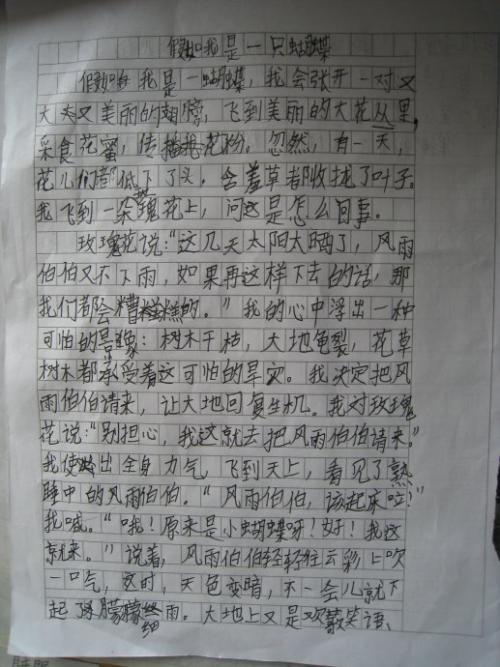 假如我是一只蝴蝶
假如我是一蝴蝶，我会张开一对又
大又美丽的翅膀，飞到美丽的大花丛里，
采食花蜜，传播花粉。忽然，有一天，
花儿们都低下了头，含羞草都收拢了叶子。
我飞到一朵玫瑰花上，问这是怎么回事。
玫瑰花说："这几天太阳大晒了，风雨
伯伯又不下雨，如果再这样下去的话，那
我们都会糟糕的。"我的心中浮出一种
可怕的景象：树木干枯，大地龟裂，花草
树木都承受着这可怕的旱灾。我决定把风
雨伯伯请来，让大地回复生机。我对玫瑰
花说："别担心，我这就去把风雨伯伯请来。"
我使出全身力气飞到天上，看见了熟
睡中的风雨伯伯。"风雨伯伯，该起床啦！"
我喊。"哦！原来是小蝴蝶呀！好！我这
就来。"说着，风雨伯伯轻轻往云彩上吹
一口气，顿时，天色变暗，不一会儿就下
起了朦朦细雨。大地上又是欢歌笑语、